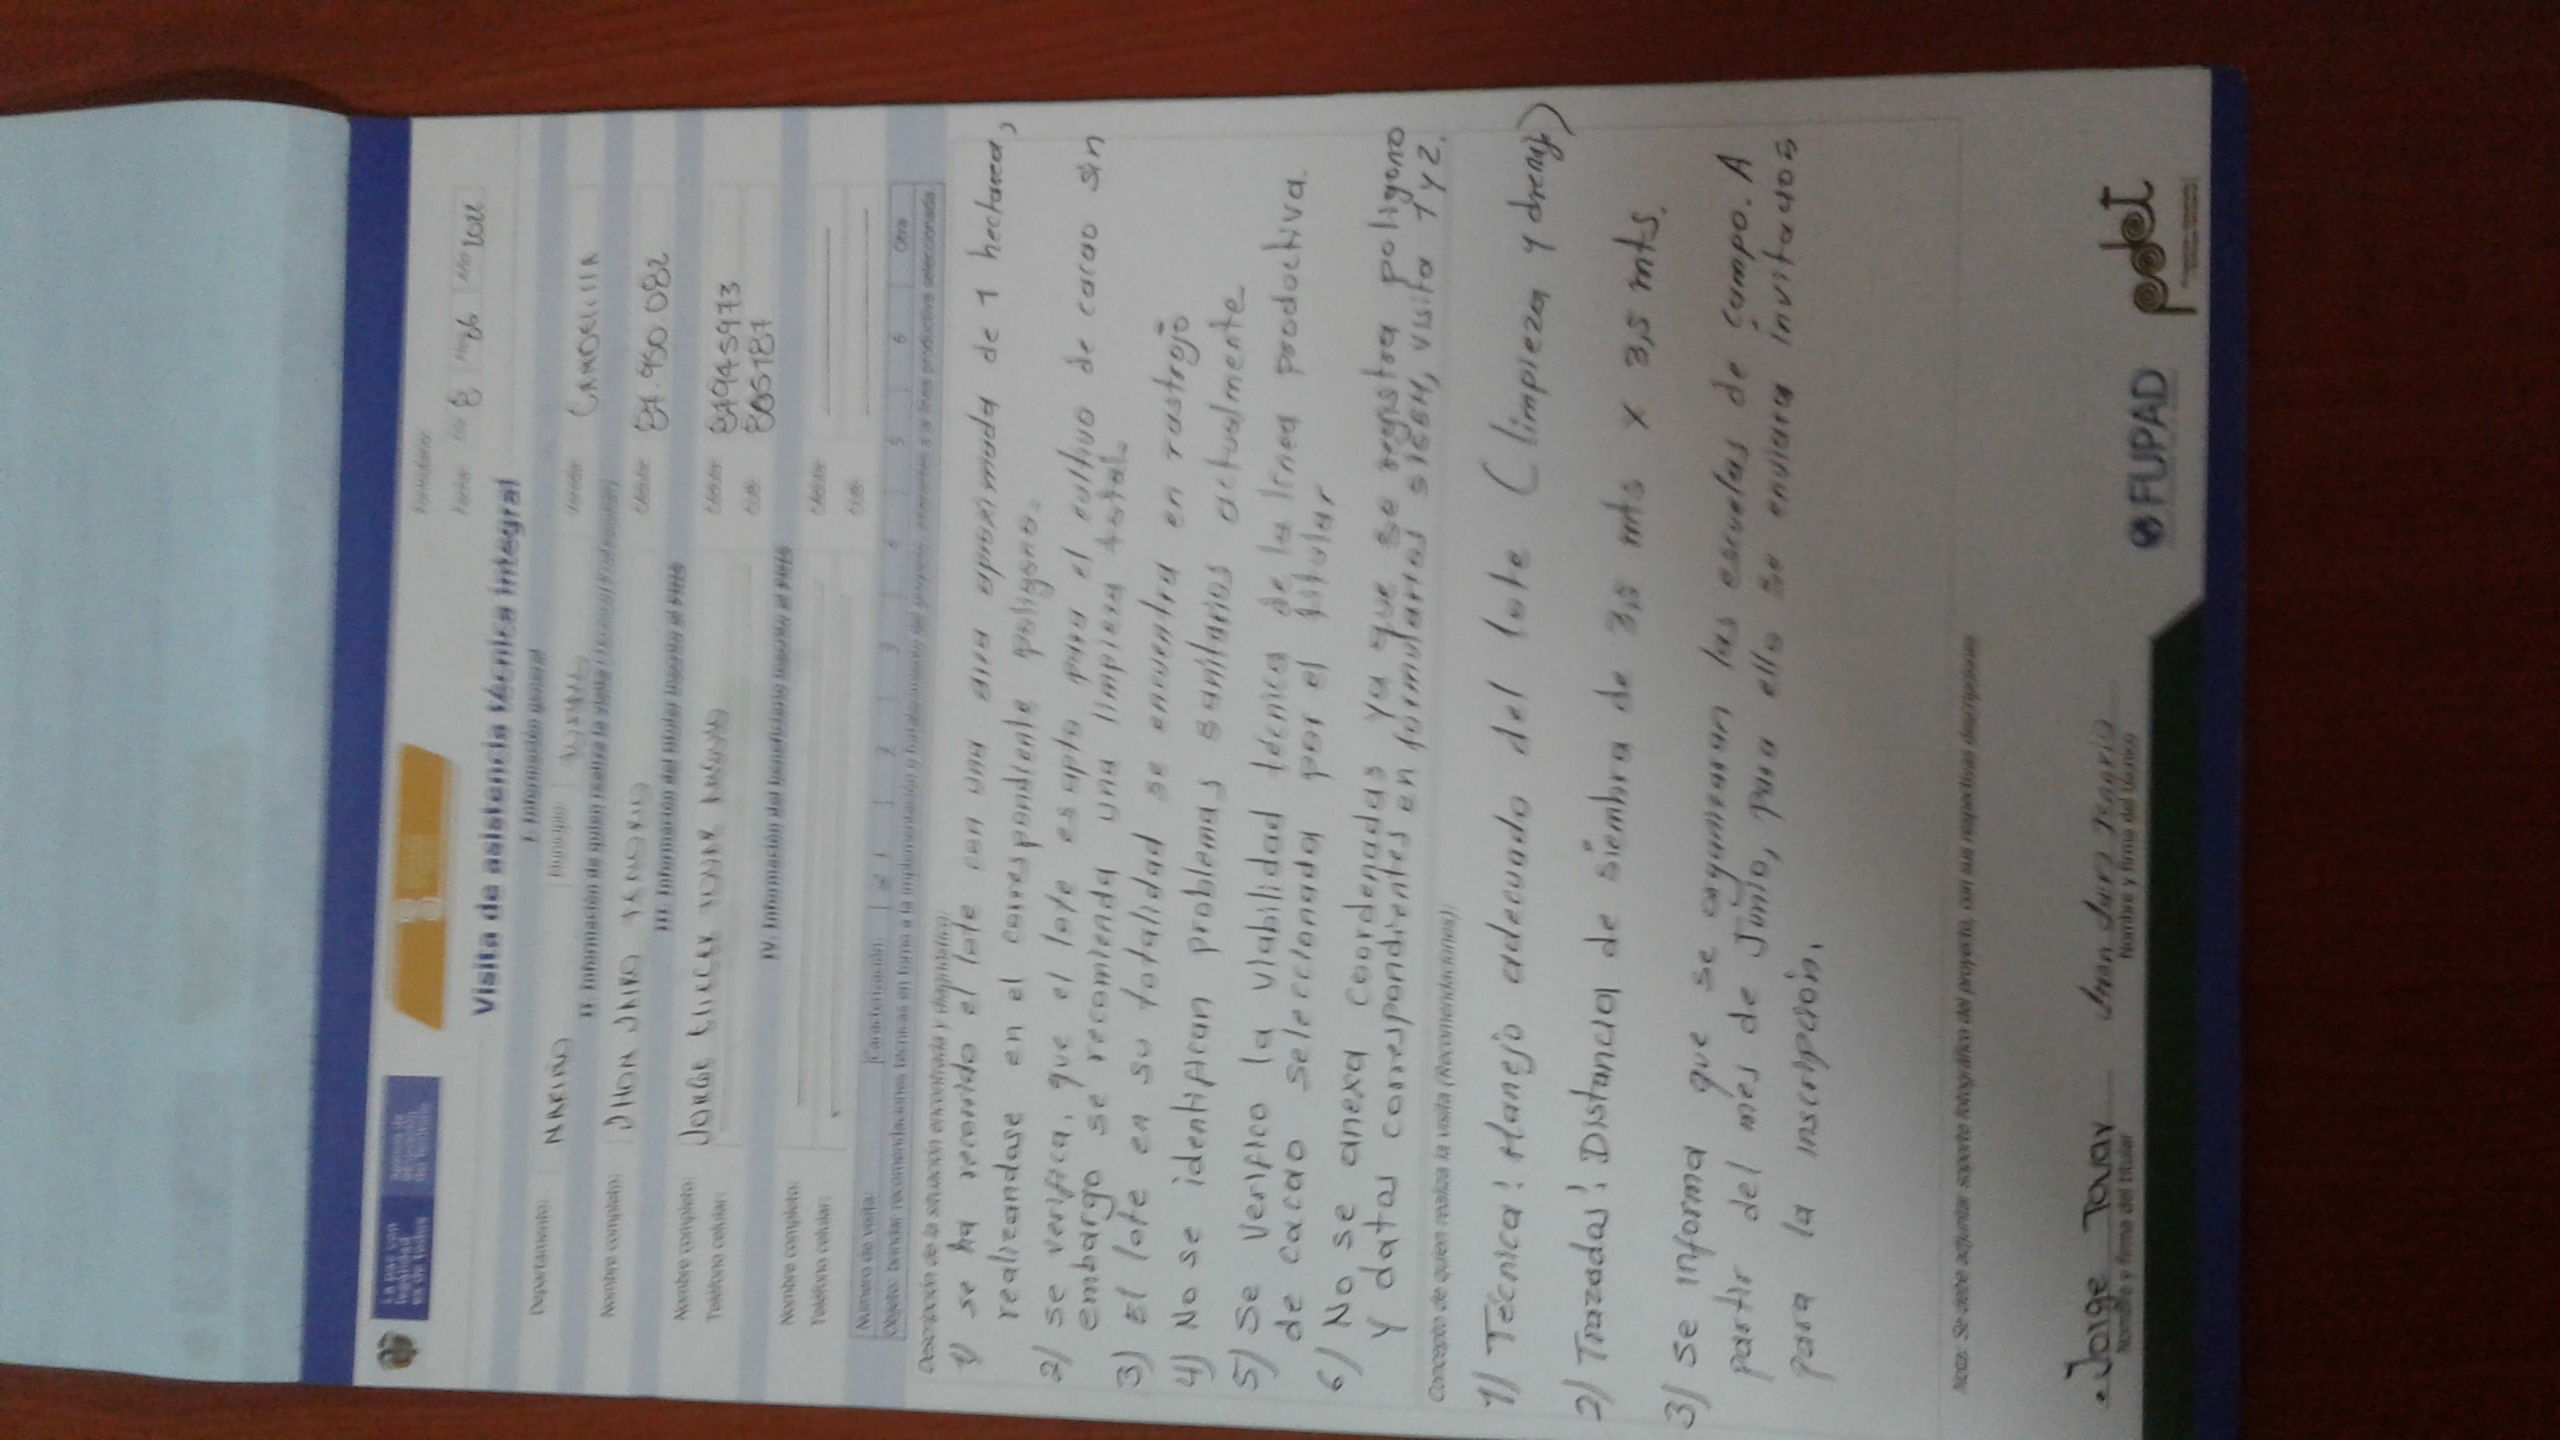 La paz con legalidad es de todos
Agencia de Renovación del Territorio
Formulario:
Fecha: Día 8 Mes 06 Año 2022
Visita de asistencia técnica integral
I. Información general
Departamento: NARIÑO Municipio: Vereda: CANDELILLA
II. Información de quien realiza la visita
Nombre completo: JHON JAIRO TENORIO Cédula: 87.950.082
III. Información del titular inscrito al PNIS
Nombre completo: JORGE TOVAR Cédula: 849445973
Teléfono celular: CUB: 8051787
IV. Información del beneficiario inscrito al PNIS
Nombre completo: Cédula:
Teléfono celular: CUB:
Número de visita: Caracterización: 1 2 3 4 5 6 Otra
Objeto: brindar recomendaciones técnicas en torno a la implementación y fortalecimiento del proyecto, inherentes a la línea productiva seleccionada
Descripción de la situación encontrada y diagnóstico:
1) se ha recorrido el lote con una area aproximada de 1 hectarea,
realizandase en el correspondiente poligono.
2) se verifica, que el lote es apto para el cultivo de cacao sin
embargo se recomienda una limpieza total.
3) El lote en su totalidad se encuentra en rastrojo
4) No se identifican problemas sanitarios actualmente
5) Se verifico la viabilidad técnica de la línea productiva
de cacao seleccionada por el titular
6) No se anexa coordenadas ya que se registra poligono
y datos correspondientes en formularios SIGBH, visita 1 y 2.
Concepto de quien realiza la visita (Recomendaciones):
1) Técnica: Manejo adecuado del lote (limpieza y drenaj)
2) Trazadas: Distancia de siembra de 3,5 mts x 3,5 mts.
3) Se informa que se organizaran las escuelas de campo. A
partir del mes de Junio, para ello se enviara invitados
para la inscripción.
Nota: Se debe adjuntar soporte fotográfico del proyecto, con sus respectivas descripciones
Jorge Tovar
Nombre y firma del titular
Jhon Jairo Tenorio
Nombre y firma del técnico
FUPAD
pdet